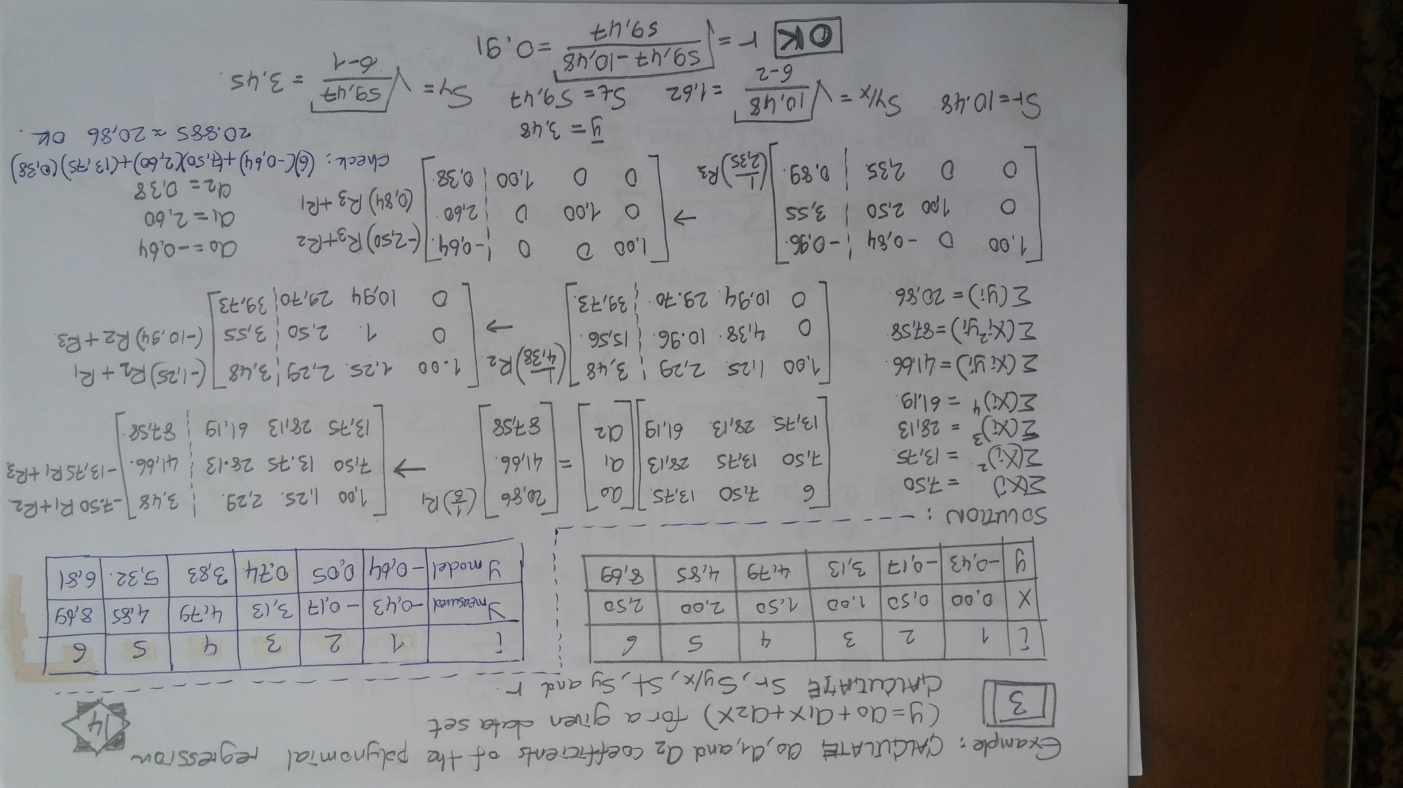 Example: CALCULATE a0, a1, and a2 coefficients of the polynomial regression
14
3
(y=a0+a1x+a2x) for a given data set
CALCULATE Sr, Sy/x, St, Sy and r.
i 1 2 3 4 5 6
x 0,00 0,50 1.00 1,50 2,00 2,50
y -0,43 -0,17 3,13 4,79 4,85 8,69
i 1 2 3 4 5 6
y measured -0,43 -0,17 3,13 4,79 4.85 8,69
y model -0,64 0,05 0,74 3,83 5,32. 6,81
SOLUTION :
Σ(xi) = 7,50
Σ(xi)² = 13,75
Σ(xi)³ = 28,13
Σ(xi)⁴ = 61,19
Σ(xi yi) = 41,66
Σ(xi² yi) = 87,58
Σ(yi) = 20,86
6 7,50 13,75 a0 = 20,86 (1/6)R1
7,50 13,75 28,13 a1 41,66.
13,75. 28,13. 61,19 a2 87,58
→
1,00 1,25. 2,29. 3,48 -7,50 R1+R2
7,50 13.75 28.13 41,66. -13,75 R1+R3
13,75 28,13 61,19 87,58.
1,00 1,25. 2,29 3,48 (1/4,38)R2
0 4,38. 10.96. 15,56
0 10,94. 29.70. 39,73.
→
1.00 1,25. 2,29 3,48 (-1,25) R2 + R1
0 1. 2,50 3,55 (-10,94) R2 + R3.
0 10,94 29,70 39,73
1,00 0 -0,84 -0,96.
0 1,00 2,50 3,55
0 0 2,35 0,89. (1/2,35)R3
→
1,00 0 0 -0,64. (-2,50) R3+R2
0 1,00 0 2,60. (0,84) R3+R1
0 0 1,00 0,38.
a0=-0,64
a1=2,60
a2=0,38
check: (6)(-0,64)+(7,50)(2,60)+(13,75)(0,38)
20.885 ≈ 20,86 OK.
ȳ = 3,48
Sr=10.48. Sy/x = √(10,48/6-2) = 1,62 St = 59,47 Sy = √(59,47/6-1) = 3,45.
OK r = √(59,47-10,48/59,47) = 0,91